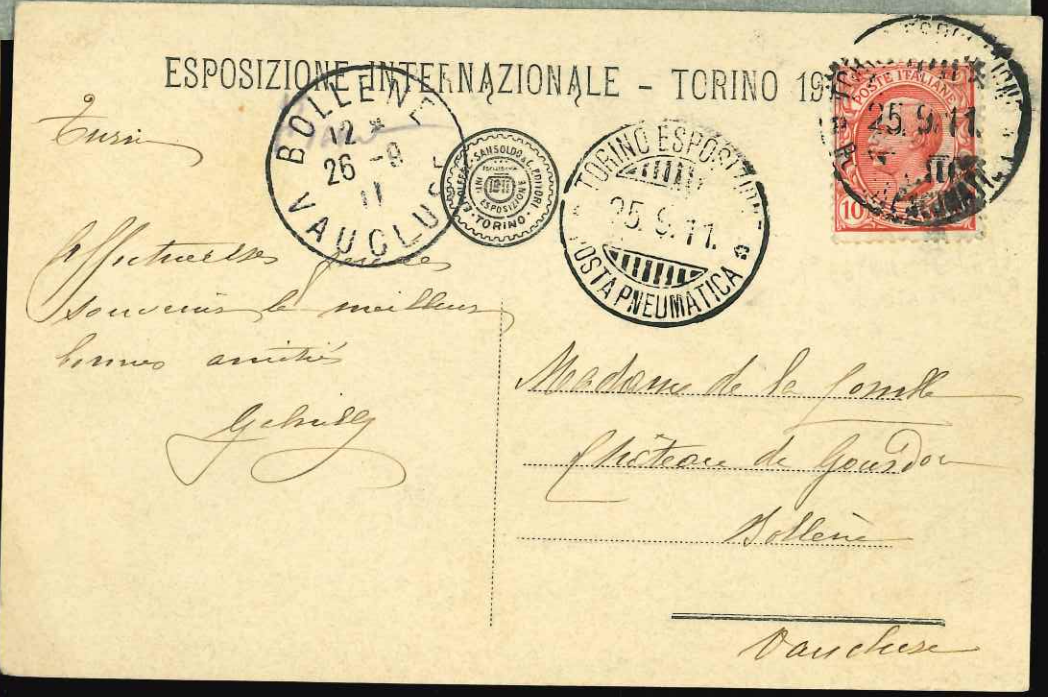 ESPOSIZIONE INTERNAZIONALE - TORINO 19
POSTE ITALIANE
10
25.9.11.
BOLLENE
12 *
26 -9
11
VAUCLUSE
SANSOLDO & C. EDITORI
1911
ESPOSIZIONE
TORINO
TORINO ESPOSIZIONE
25.9.11.
POSTA PNEUMATICA
Turin
Affectueuses
souvenirs le meilleur
bonnes amitiés
Madame de la
Château de Gourdon
Bollène
Vaucluse